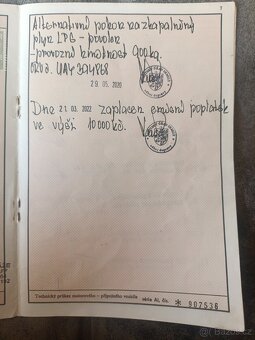 Alternativní pohon na zkapalněný
plyn LPG - povolen
- provozní hmotnost 900kg.
29. 05. 2020
Dne 21. 03. 2022 zaplacen emisní poplatek
ve výši 10 000 kč.
Technický průkaz motorového - přípojného vozidla
série AL čís. * 907536